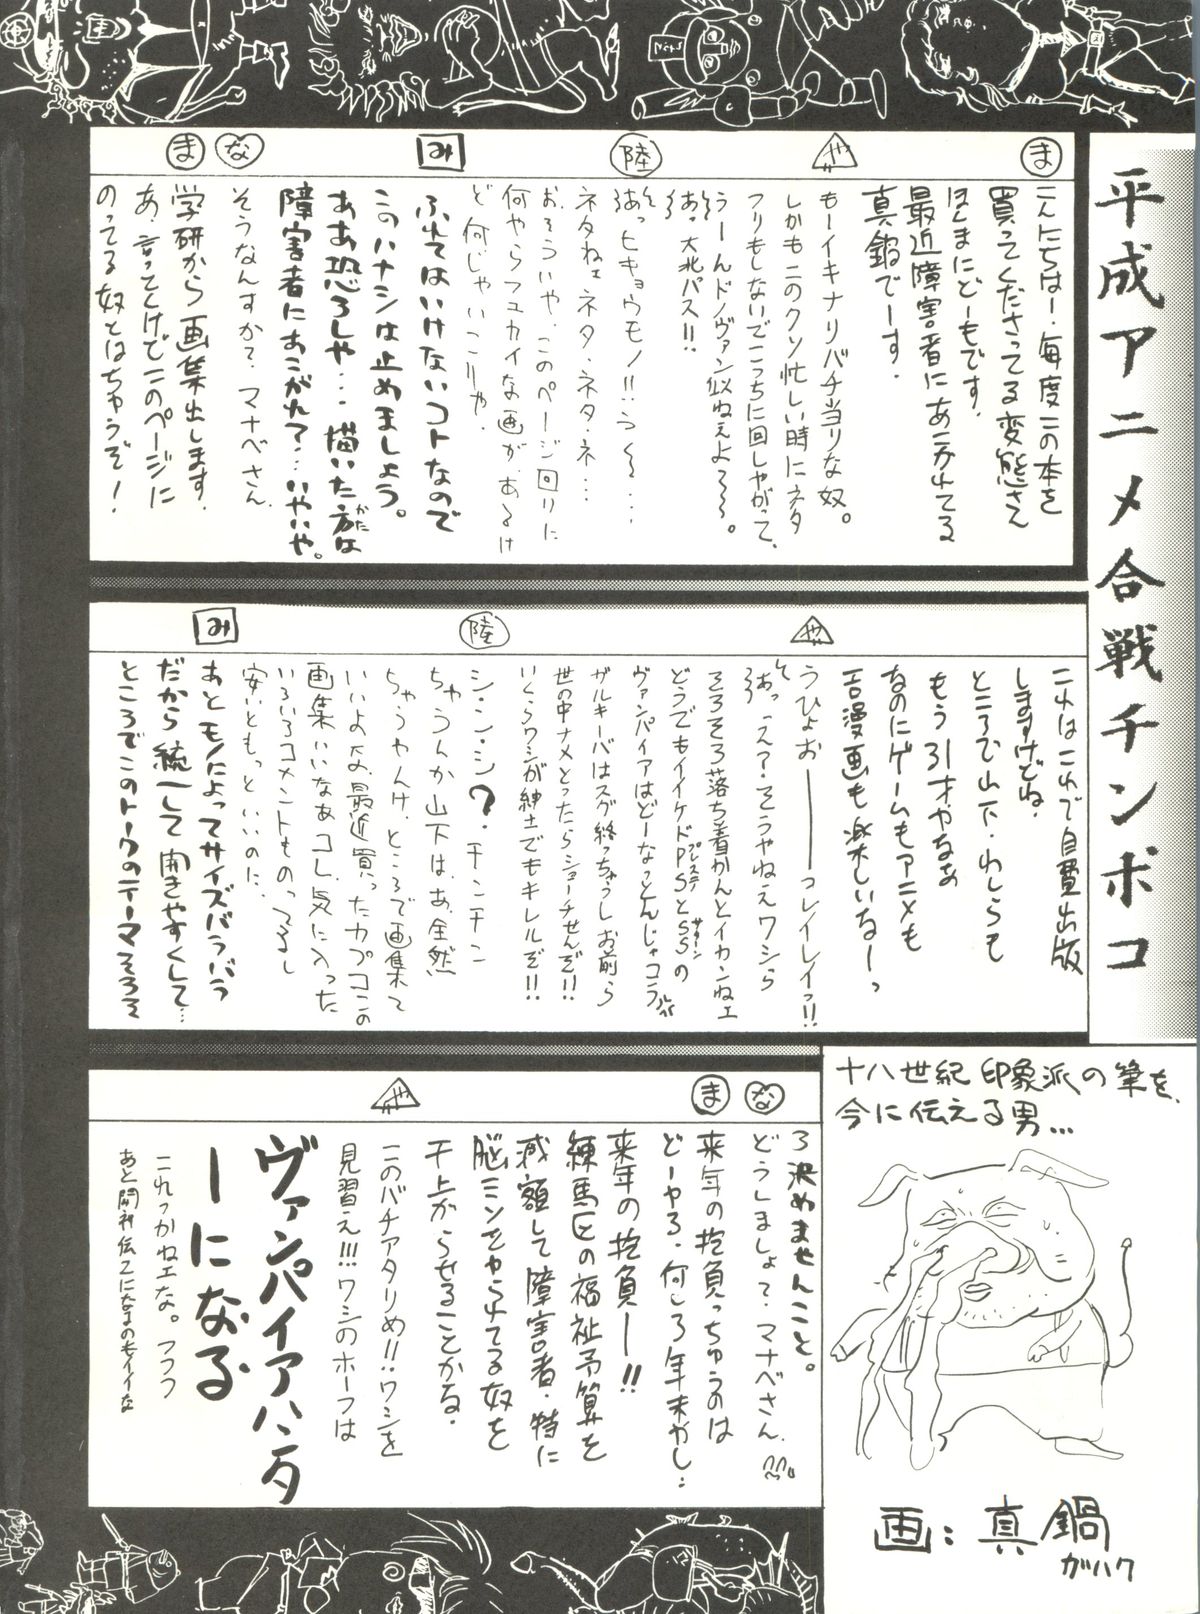 平成アニメ合戦チンポコ
ま
こんにちはー、毎度この本を
買ってくださってる変態さん
ほんまにどーもです。
最近障害者にあこがれてる
真鍋でーす。
や
もーイキナリバチ当りな奴。
しかもこのクソ忙しい時にネタ
フリもしないでこっちに回しやがって、
うーんドノヴァン似ねぇよ〜〜。
あっ大北パス!!
陸
あっヒキョウモノ!!うく〜…
ネタねェネタ・ネタ・ネ…
お、そういや、このページ回りに
何やらフユカイな画が、あるけ
ど何じゃいこりゃ。
み
ふれてはいけないコトなので
このハナシは止めましょう。
ああ恐ろしや…描いた方は
障害者にあこがれて…いやいや。
な
そうなんすか?マナベさん
ま
学研から画集出します。
あ、言ってくけでこのページに
のってる奴とはちゃうぞ!
これはこれで自費出版
しますけどね。
ところで山下、わしらも
もう31才やなぁ
なのにゲームもアニメも
エロ漫画も楽しいなーっ
や
うひょおーーーコレイレイっ!!
あっえ?そうやねえワシら
そろそろ落ち着かんとイカンねェ
どうでもイイケドPSプレステとSSサターンの
ヴァンパイアはどーなっとんじゃコラ
ザルキーバはスグ終っちゃうしお前ら
世の中ナメとったらショーチせんぞ!!
いくらワシが紳士でもキレルぞ!!
陸
シ・ン・シ?チンチン
ちゃうんか山下は、あ、全然
ちゃうやんけ、ところで画集て
いいよな、最近買ったカプコンの
画集いいなぁコレ、気に入った
いろいろコメントものってるし
安いともっといいのに、
み
あとモノによってサイズバラバラ
だから統一して開きやすくして…
ところでこのトークのテーマそろそ
ろ決めませんこと。
な
どうしましょて、マナベさん
ま
来年の抱負っちゅうのは
どーやろ、何しろ年末やし…
来年の抱負ー!!
練馬区の福祉予算を
減額して障害者、特に
脳ミソをやられてる奴を
干上がらせることかな。
や
このバチアタリめ!!ワシを
見習え!!!ワシのホーフは
ヴァンパイアハンタ
ーになる
これっかねェな。フフフ
十八世紀印象派の筆を、
今に伝える男…
画:真鍋
ガハク